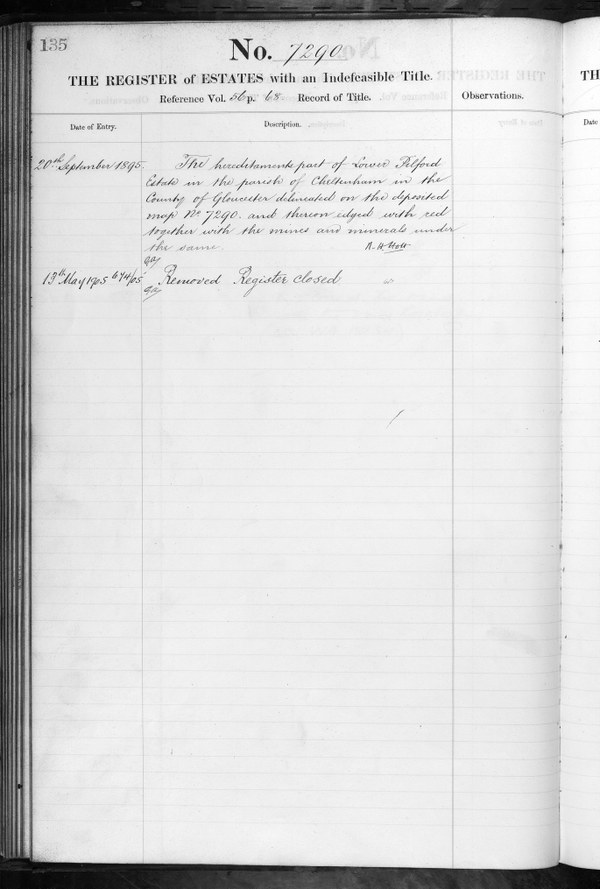 135
No. 7290
THE REGISTER of ESTATES with an Indefeasible Title.
Reference Vol. 56 p. 68 Record of Title.
Observations.
Date of Entry.
Description.
20th September 1895.
The hereditaments part of Lower Pilford
Estate in the parish of Cheltenham in the
County of Gloucester delineated on the deposited
map No 7290. and thereon edged with red
together with the mines and minerals under
the same.
13th May 1905 674/05
Removed Register closed
TH
Date